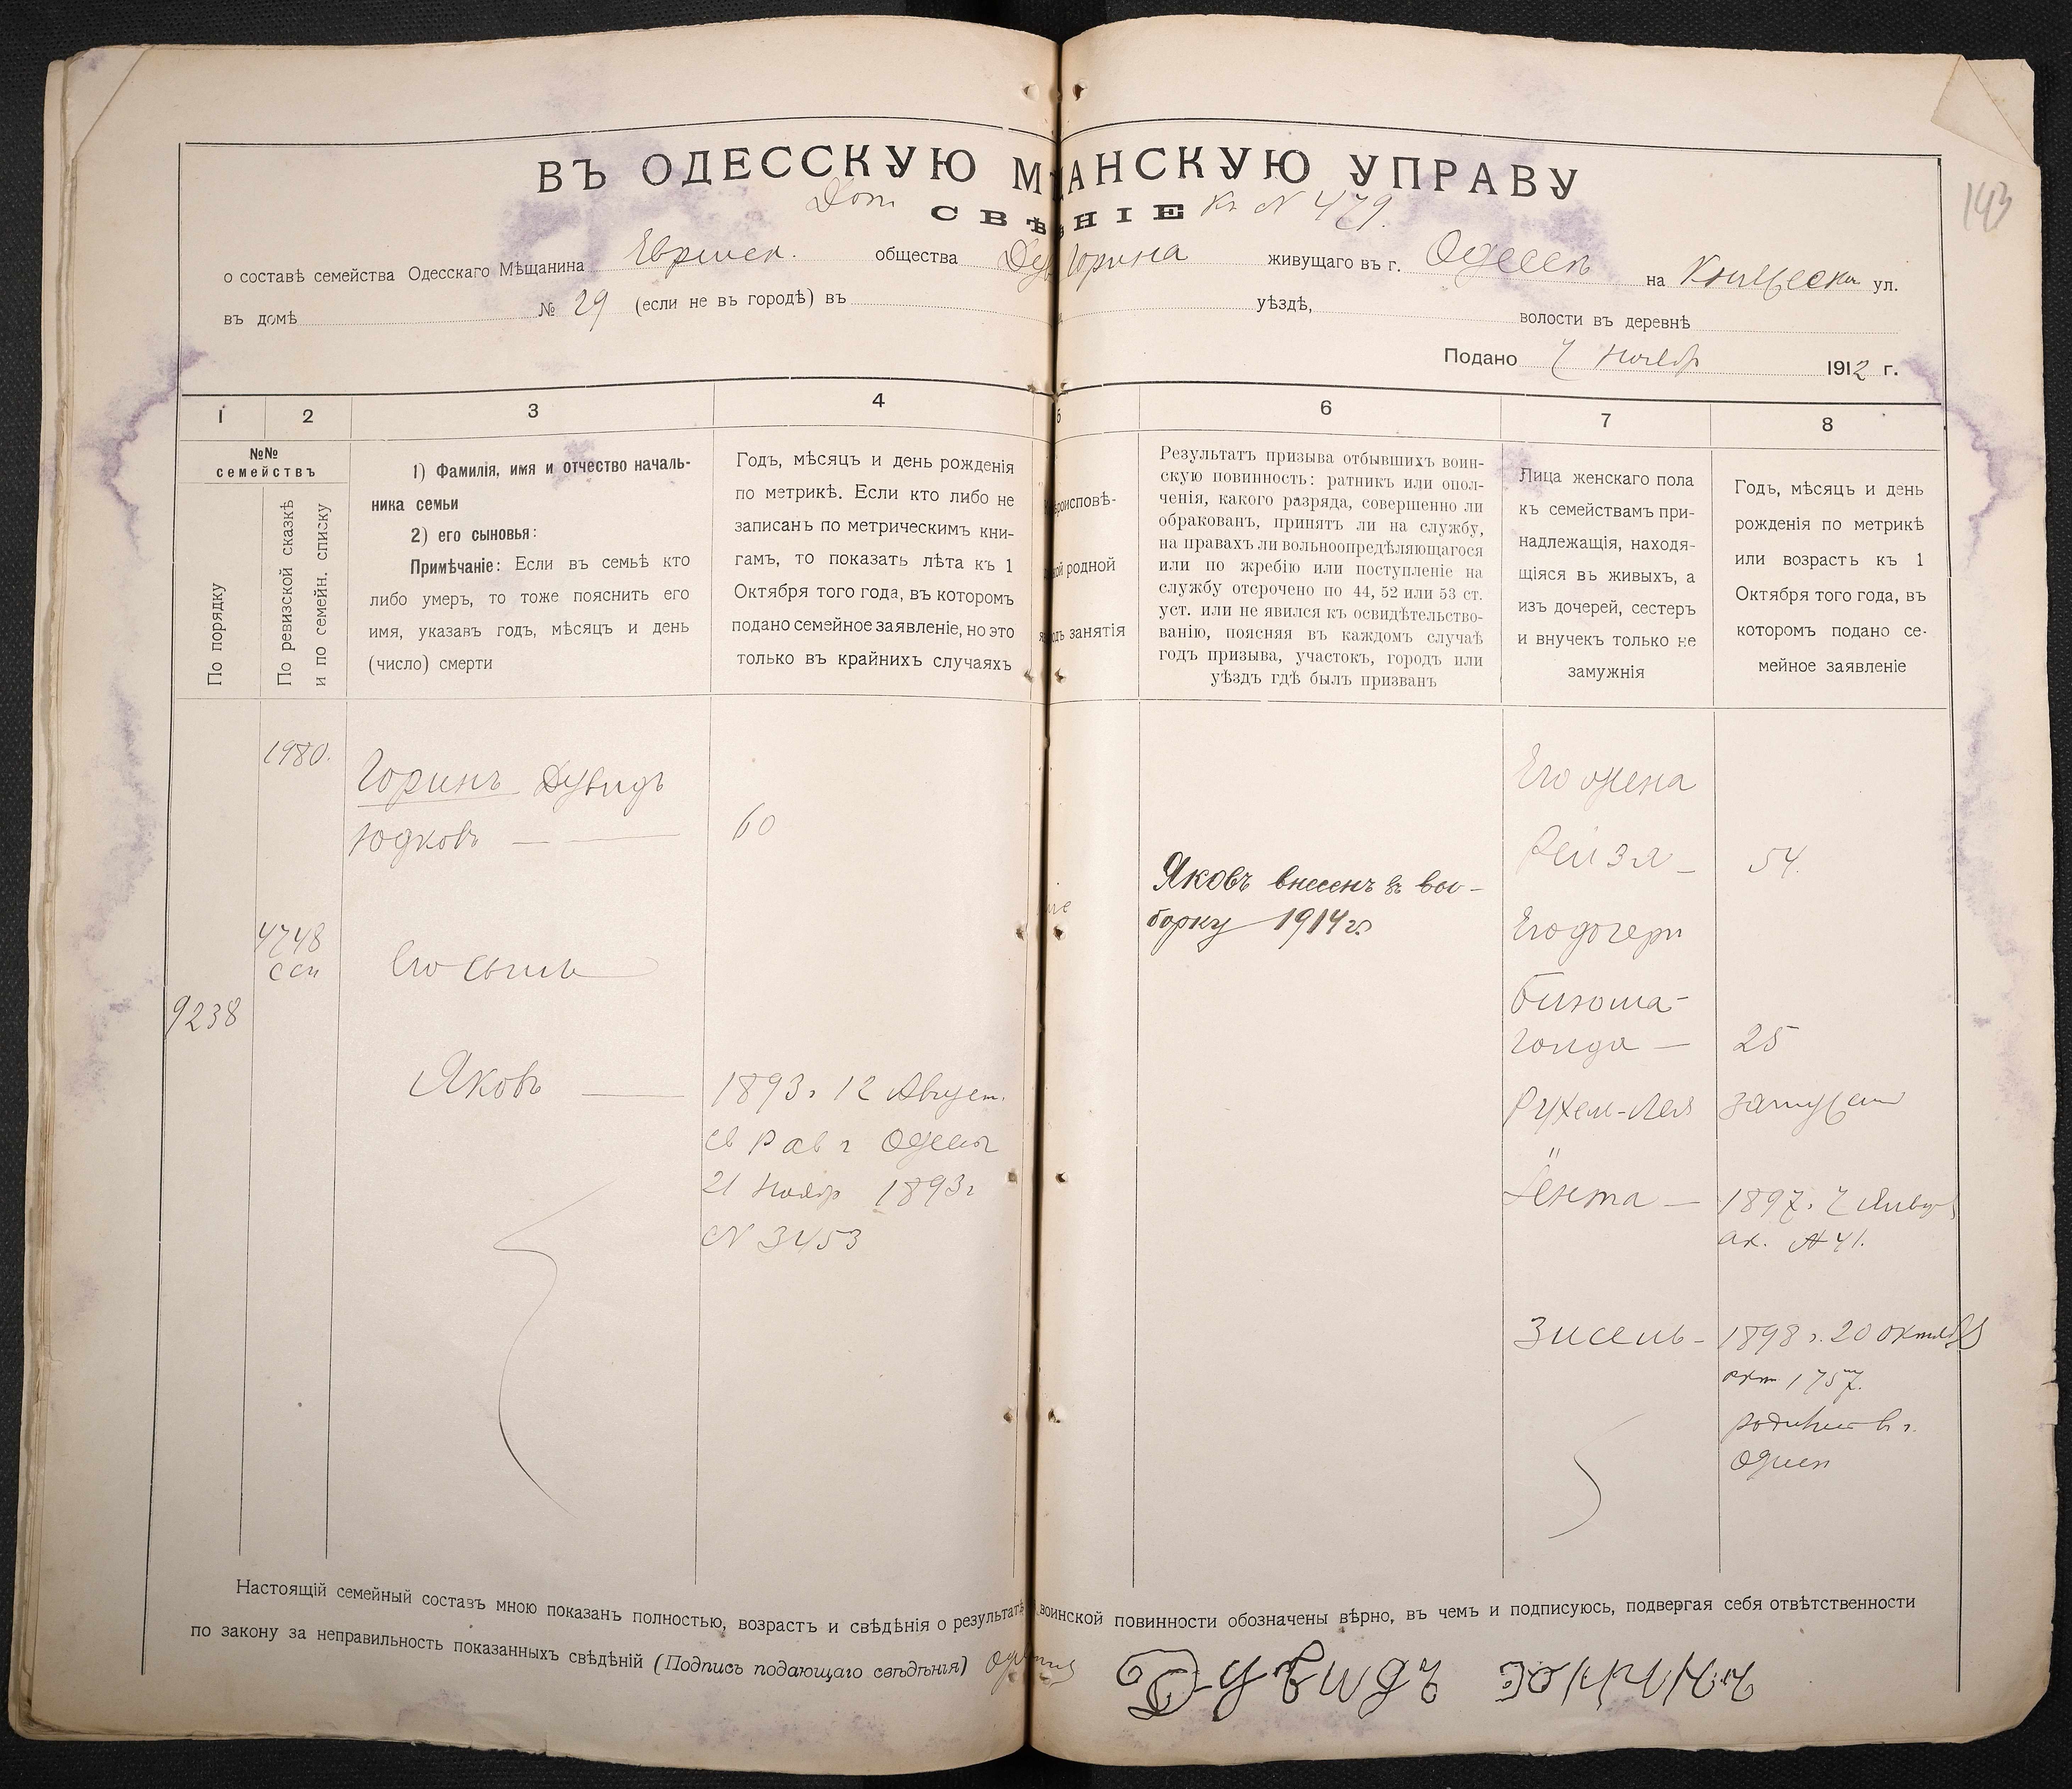 143
ВЪ ОДЕССКУЮ М АНСКУЮ УПРАВУ
Доп. къ № 479.
СВѢ НІЕ
о составѣ семейства Одесскаго Мѣщанина Еврейск. общества Дув Горина живущаго въ г. Одессѣ на ул.
въ домѣ № 29 (если не въ городѣ) въ уѣздѣ, волости въ деревнѣ
Подано 7 Ноябр 1912 г.
1 2 3 4 5 6 7 8
№№
семействъ
По порядку
По ревизской сказкѣ
и по семейн. списку
1) Фамилія, имя и отчество началь-
ника семьи
2) его сыновья:
Примѣчаніе: Если въ семьѣ кто
либо умеръ, то тоже пояснить его
имя, указавъ годъ, мѣсяцъ и день
(число) смерти
Годъ, мѣсяцъ и день рожденія
по метрикѣ. Если кто либо не
записанъ по метрическимъ кни-
гамъ, то показать лѣта къ 1
Октября того года, въ которомъ
подано семейное заявленіе, но это
только въ крайнихъ случаяхъ
роисповѣ-
ой родной
одъ занятія
Результатъ призыва отбывшихъ воин-
скую повинность: ратникъ или опол-
ченія, какого разряда, совершенно ли
обракованъ, принятъ ли на службу,
на правахъ ли вольноопредѣляющагося
или по жребію или поступленіе на
службу отсрочено по 44, 52 или 53 ст.
уст. или не явился къ освидѣтельство-
ванію, поясняя въ каждомъ случаѣ
годъ призыва, участокъ, городъ или
уѣздъ гдѣ былъ призванъ
Лица женскаго пола
къ семействамъ при-
надлежащія, находя-
щіяся въ живыхъ, а
изъ дочерей, сестеръ
и внучекъ только не
замужнія
Годъ, мѣсяцъ и день
рожденія по метрикѣ
или возрастъ къ 1
Октября того года, въ
которомъ подано се-
мейное заявленіе
1980.
Горинъ Дувидъ
Юдковъ — 60
4748
ссп
9238
Его сынъ
Яковъ — 1893 г 12 Август.
св Рав г Одессы
21 Ноябр 1893 г
№ 3453
Яковъ внесенъ въ вы-
борку 1914 г.
Его жена
Рейзя — 54.
Его дочери
Бизюма-
Голда — 25
Рухель-Лея замужем
Іента — 1897. 7 Январ
ак. № 41.
Зисель — 1898 г. 20 октябр
акт 1757.
родились в г.
Одессе
Настоящій семейный составъ мною показанъ полностью, возрастъ и свѣдѣнія о результатѣ воинской повинности обозначены вѣрно, въ чемъ и подписуюсь, подвергая себя отвѣтственности
по закону за неправильность показанныхъ свѣдѣній (Подпись подающаго свѣдѣнія)
Дувидъ Горинъ